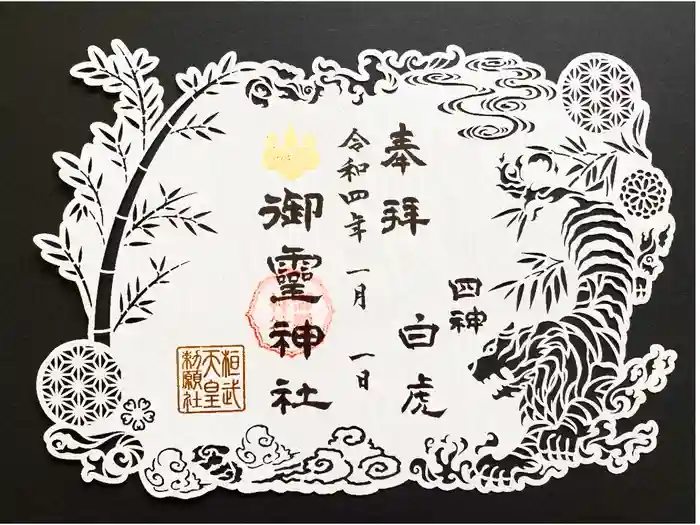 奉拝
四神
白虎
令和四年 一月 一日
御靈神社
桓武
天皇
勅願社